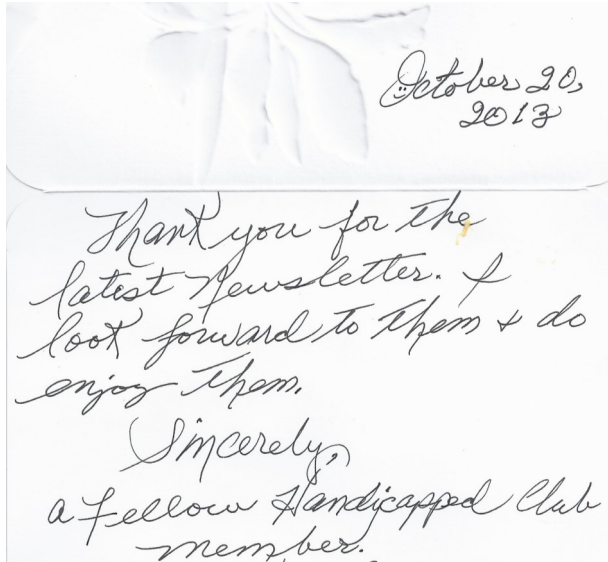 October 20,
2013
Thank you for the
latest Newsletter. I
look forward to them + do
enjoy them.
Sincerely,
a Fellow Handicapped Club
member.